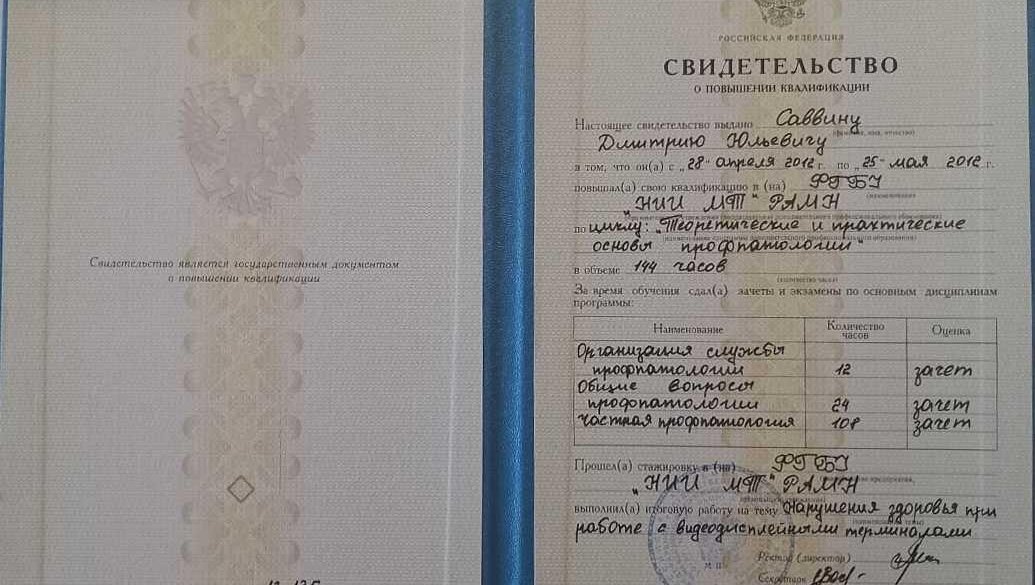 Свидетельство является государственным документом
о повышении квалификации
РОССИЙСКАЯ ФЕДЕРАЦИЯ
СВИДЕТЕЛЬСТВО
О ПОВЫШЕНИИ КВАЛИФИКАЦИИ
Настоящее свидетельство выдано Саввину
(фамилия, имя, отчество)
Дмитрию Юльевичу
в том, что он(а) с „28" апреля 2012 г. по „25" мая 2012 г.
повышал(а) свою квалификацию в (на) ФГБУ
(наименование
"НИИ МТ" РАМН
по циклу: „Теоретические и практические
основы профпатологии"
в объеме 144 часов
(количество часов)
За время обучения сдал(а) зачеты и экзамены по основным дисциплинам
программы:
Наименование Количество часов Оценка
Организация службы
профпатологии 12 зачет
Общие вопросы
профпатологии 24 зачет
Частная профпатология 108 зачет
Прошел(а) стажировку в (на) ФГБУ
"НИИ МТ" РАМН
выполнил(а) итоговую работу на тему Нарушения здоровья при
работе с видеодисплейными терминалами
Ректор (директор)
М П
Секретарь